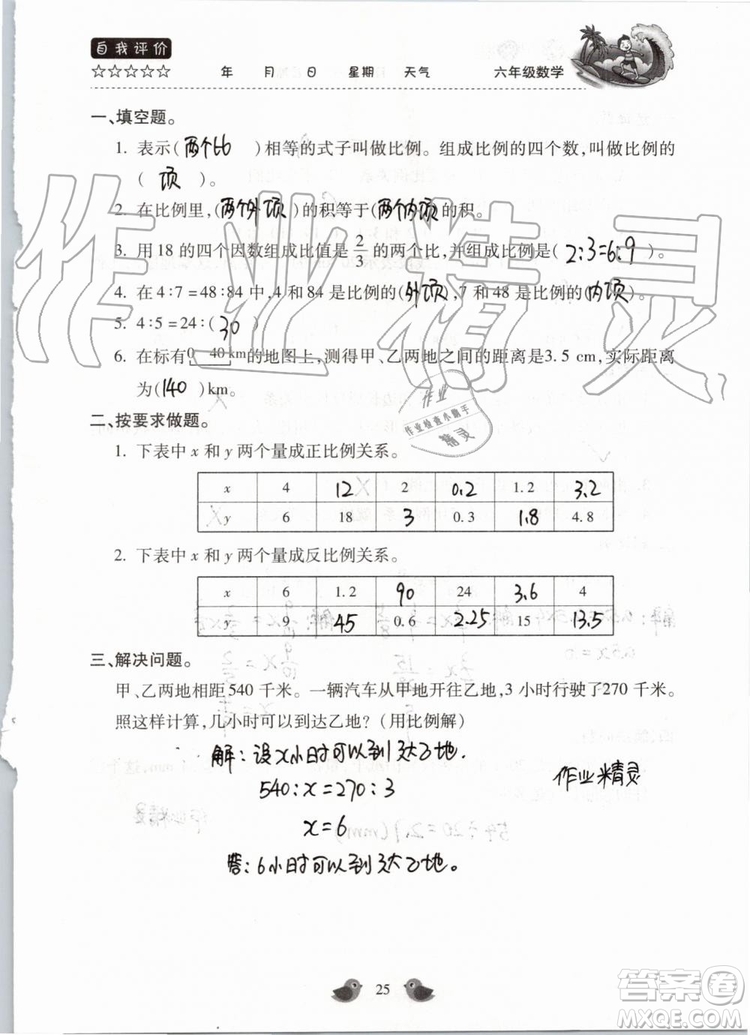 自我评价
☆☆☆☆☆ 年 月 日 星期 天气 六年级数学
一、填空题。
1. 表示(两个比)相等的式子叫做比例。组成比例的四个数,叫做比例的
(项)。
2. 在比例里,(两个外项)的积等于(两个内项)的积。
3. 用18的四个因数组成比值是2/3的两个比,并组成比例是(2:3=6:9)。
4. 在4:7=48:84中,4和84是比例的(外项),7和48是比例的(内项)。
5. 4:5=24:(30)
6. 在标有0 40km的地图上,测得甲、乙两地之间的距离是3.5 cm,实际距离
为(140)km。
二、按要求做题。
1. 下表中x和y两个量成正比例关系。
x 4 12 2 0.2 1.2 3.2
y 6 18 3 0.3 1.8 4.8
2. 下表中x和y两个量成反比例关系。
x 6 1.2 90 24 3.6 4
y 9 45 0.6 2.25 15 13.5
三、解决问题。
甲、乙两地相距540千米。一辆汽车从甲地开往乙地,3小时行驶了270千米。
照这样计算,几小时可以到达乙地?(用比例解)
解:设x小时可以到达乙地.
540:x=270:3
作业精灵
x=6
答:6小时可以到达乙地。
25
作业精灵
作业
作业检查小助手
精灵
答案圈
MXQE.COM